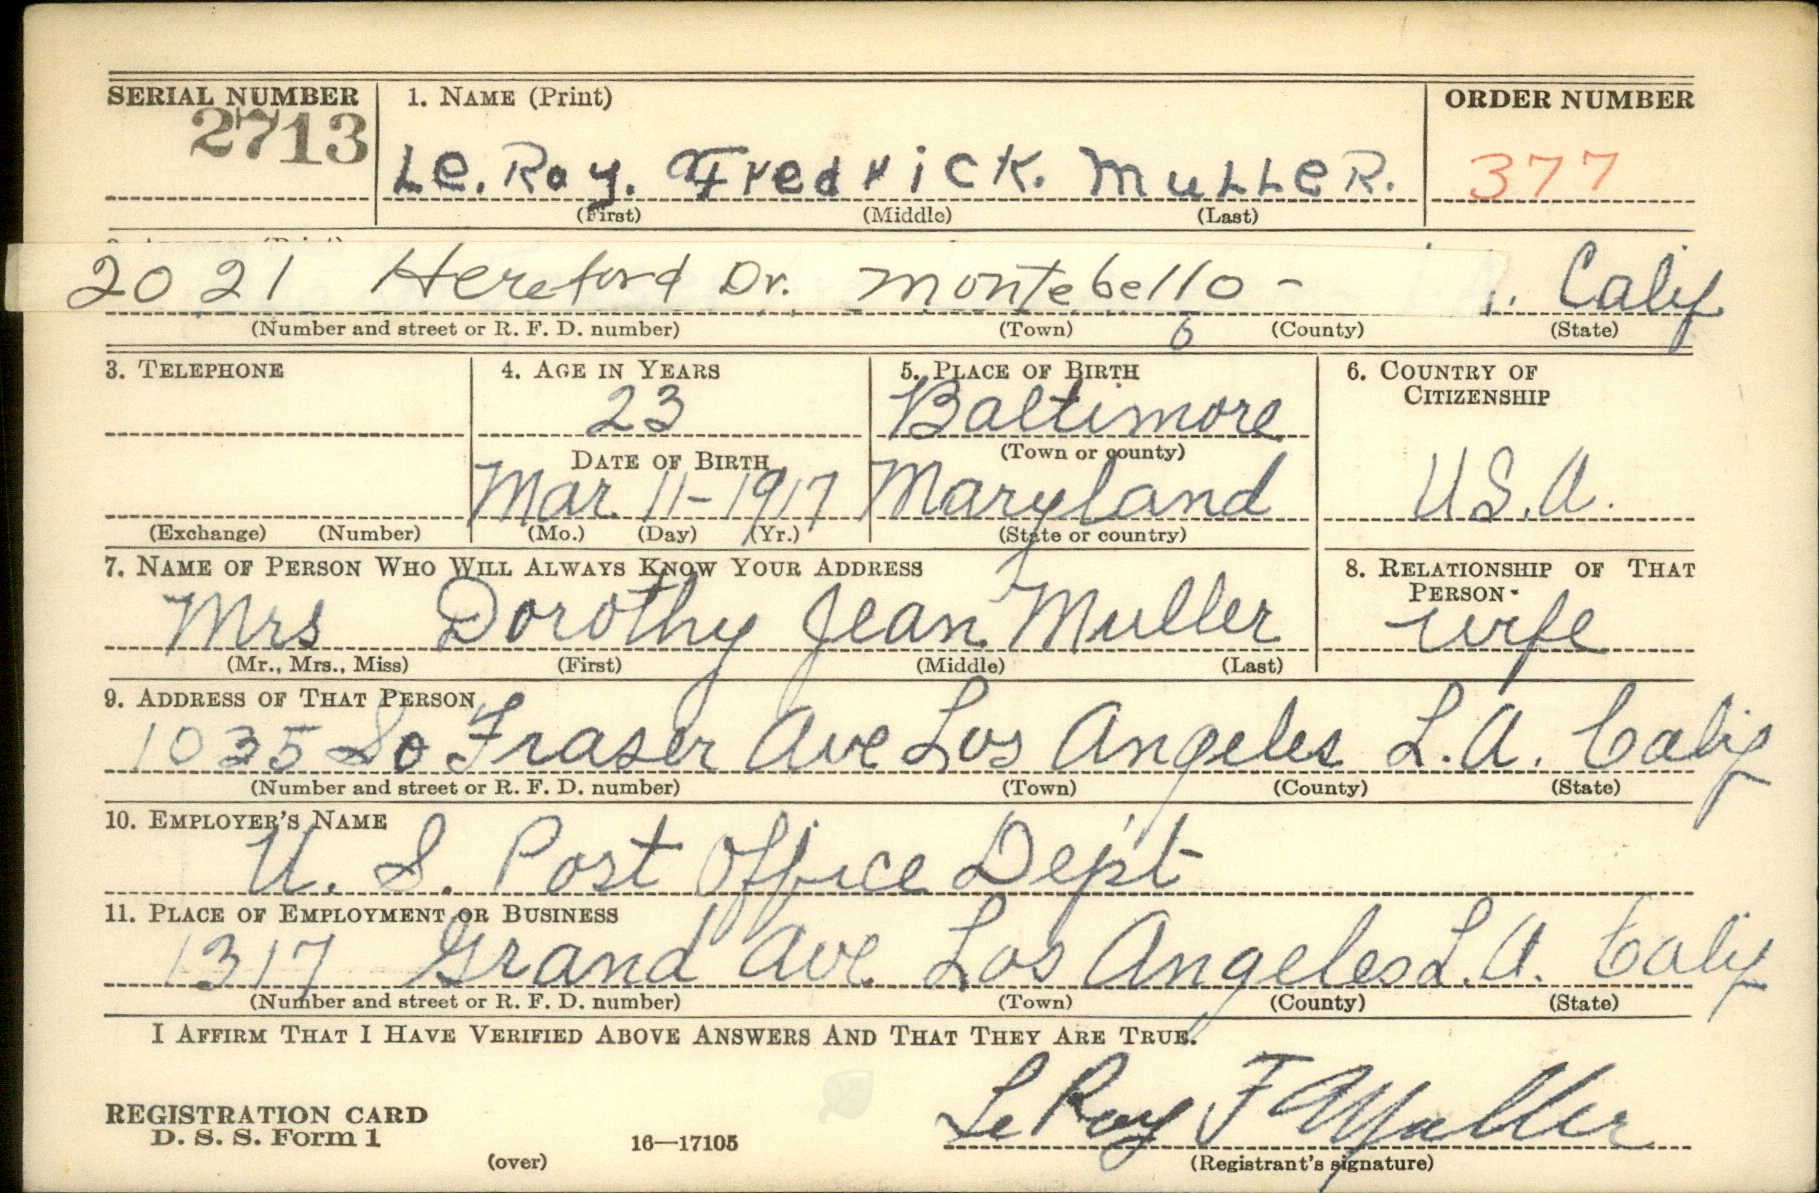 SERIAL NUMBER 1. NAME (Print) ORDER NUMBER
2713 Le. Roy. Fredrick. MulleR. 377
(First) (Middle) (Last)
2021 Hereford Dr. Montebello - Calif
(Number and street or R. F. D. number) (Town) 6 (County) (State)
3. TELEPHONE 4. AGE IN YEARS 5. PLACE OF BIRTH 6. COUNTRY OF CITIZENSHIP
23 Baltimore
DATE OF BIRTH (Town or county)
Mar. 11-1917 Maryland U.S.A.
(Exchange) (Number) (Mo.) (Day) (Yr.) (State or country)
7. NAME OF PERSON WHO WILL ALWAYS KNOW YOUR ADDRESS 8. RELATIONSHIP OF THAT PERSON
Mrs Dorothy Jean Muller wife
(Mr., Mrs., Miss) (First) (Middle) (Last)
9. ADDRESS OF THAT PERSON
1035 So Fraser Ave Los Angeles L.A. Calif
(Number and street or R. F. D. number) (Town) (County) (State)
10. EMPLOYER'S NAME
U. S. Post Office Dep't
11. PLACE OF EMPLOYMENT OR BUSINESS
1317 Grand Ave Los Angeles L.A. Calif
(Number and street or R. F. D. number) (Town) (County) (State)
I AFFIRM THAT I HAVE VERIFIED ABOVE ANSWERS AND THAT THEY ARE TRUE.
LeRoy F Muller
REGISTRATION CARD
D. S. S. Form 1 16—17105
(over) (Registrant's signature)